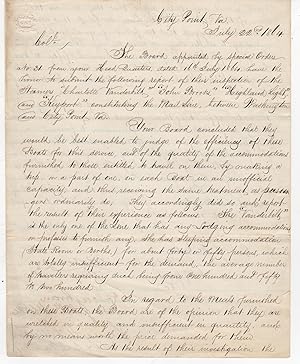 City Point, Va
July 22nd 1864
Col.,
The Board appointed by Special Order
No 31 from your Head Quarters dated 16th July 1864, have the
honor to submit the following report of their inspection of the
Steamers "Charlotte Vanderbilt" "John Brooks" "Highland Light"
and "Keyport" constituting the Mail Line between Washington
and City Point Va.
Your Board concluded that they
would be best enabled to judge of the efficiency of these
Boats for this service and of the quality of the accommodations
furnished to those entitled to have on them, by making a
trip, or a part of one, on each Boat in an unofficial
capacity, and thus receiving the same treatment, as
ordinarily do. They accordingly did so, and report
the result of their experience as follows. The "Vanderbilt"
is the only one of the Line that has any Lodging accommodations
or pretends to furnish any, she has sleeping accommodations
State Rooms or Berths, for about forty or fifty persons, which
are totally insufficient for the demand, the average number
of travellers requiring and being from One hundred and fifty
to two hundred.
In regard to the Meals furnished
on these Boats, the Board are of the opinion that they are
wretched in quality, and insufficient in quantity, and
by no means worth the price demanded for them.
As the result of their investigation the